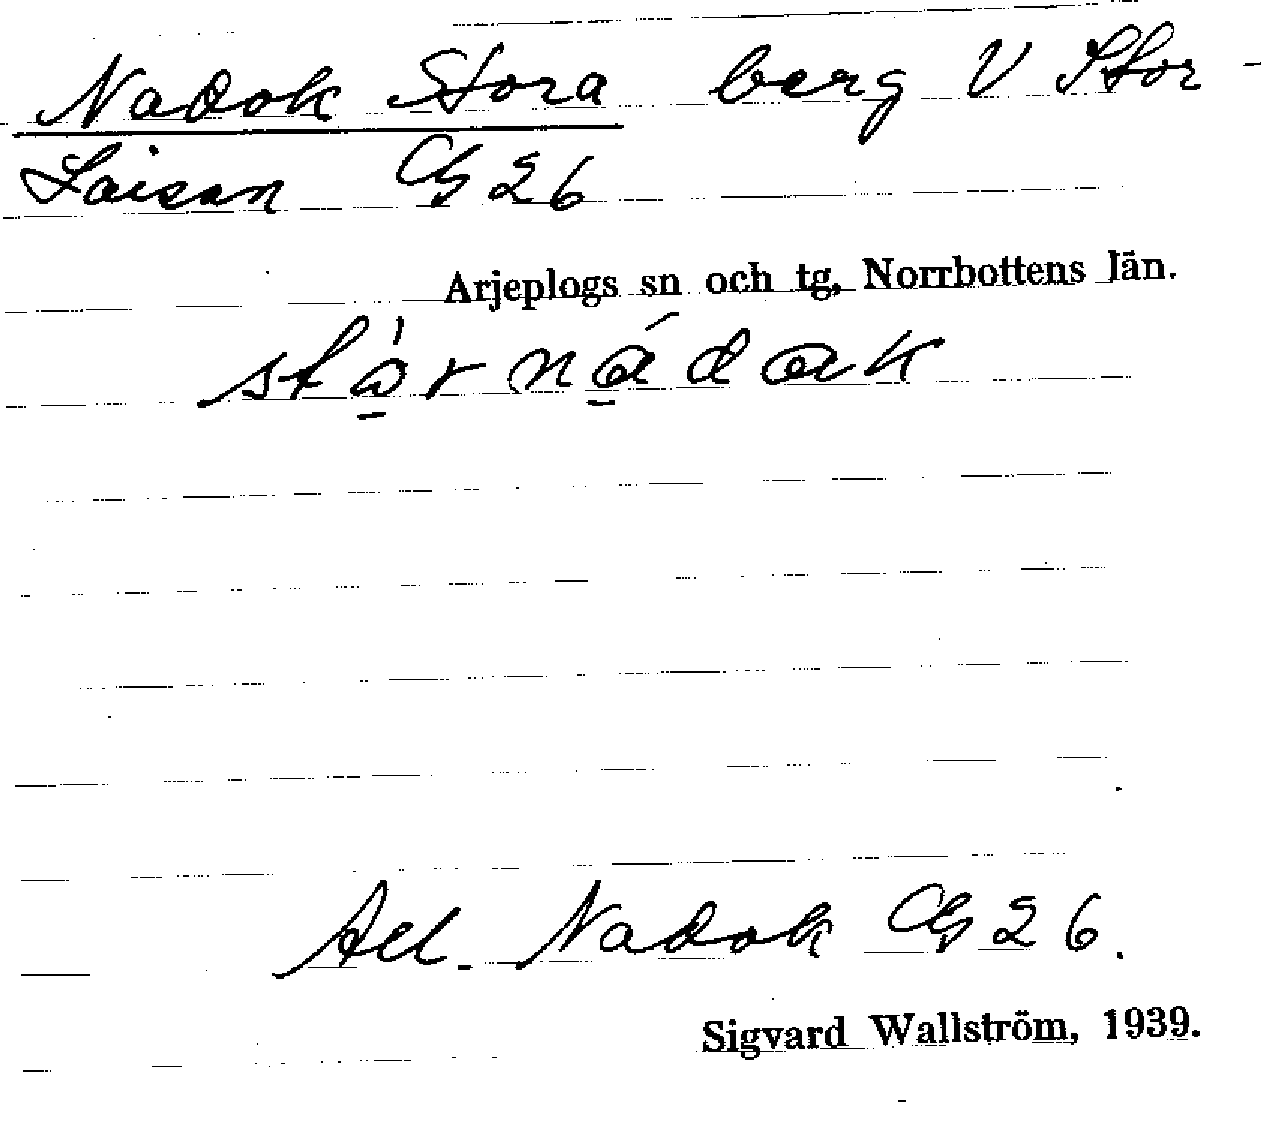 Nadok Stora berg V Stor-
Laisan G 26
Arjeplogs sn och tg, Norrbottens län.
stårnádak
Ael. Nadok G 26.
Sigvard Wallström, 1939.